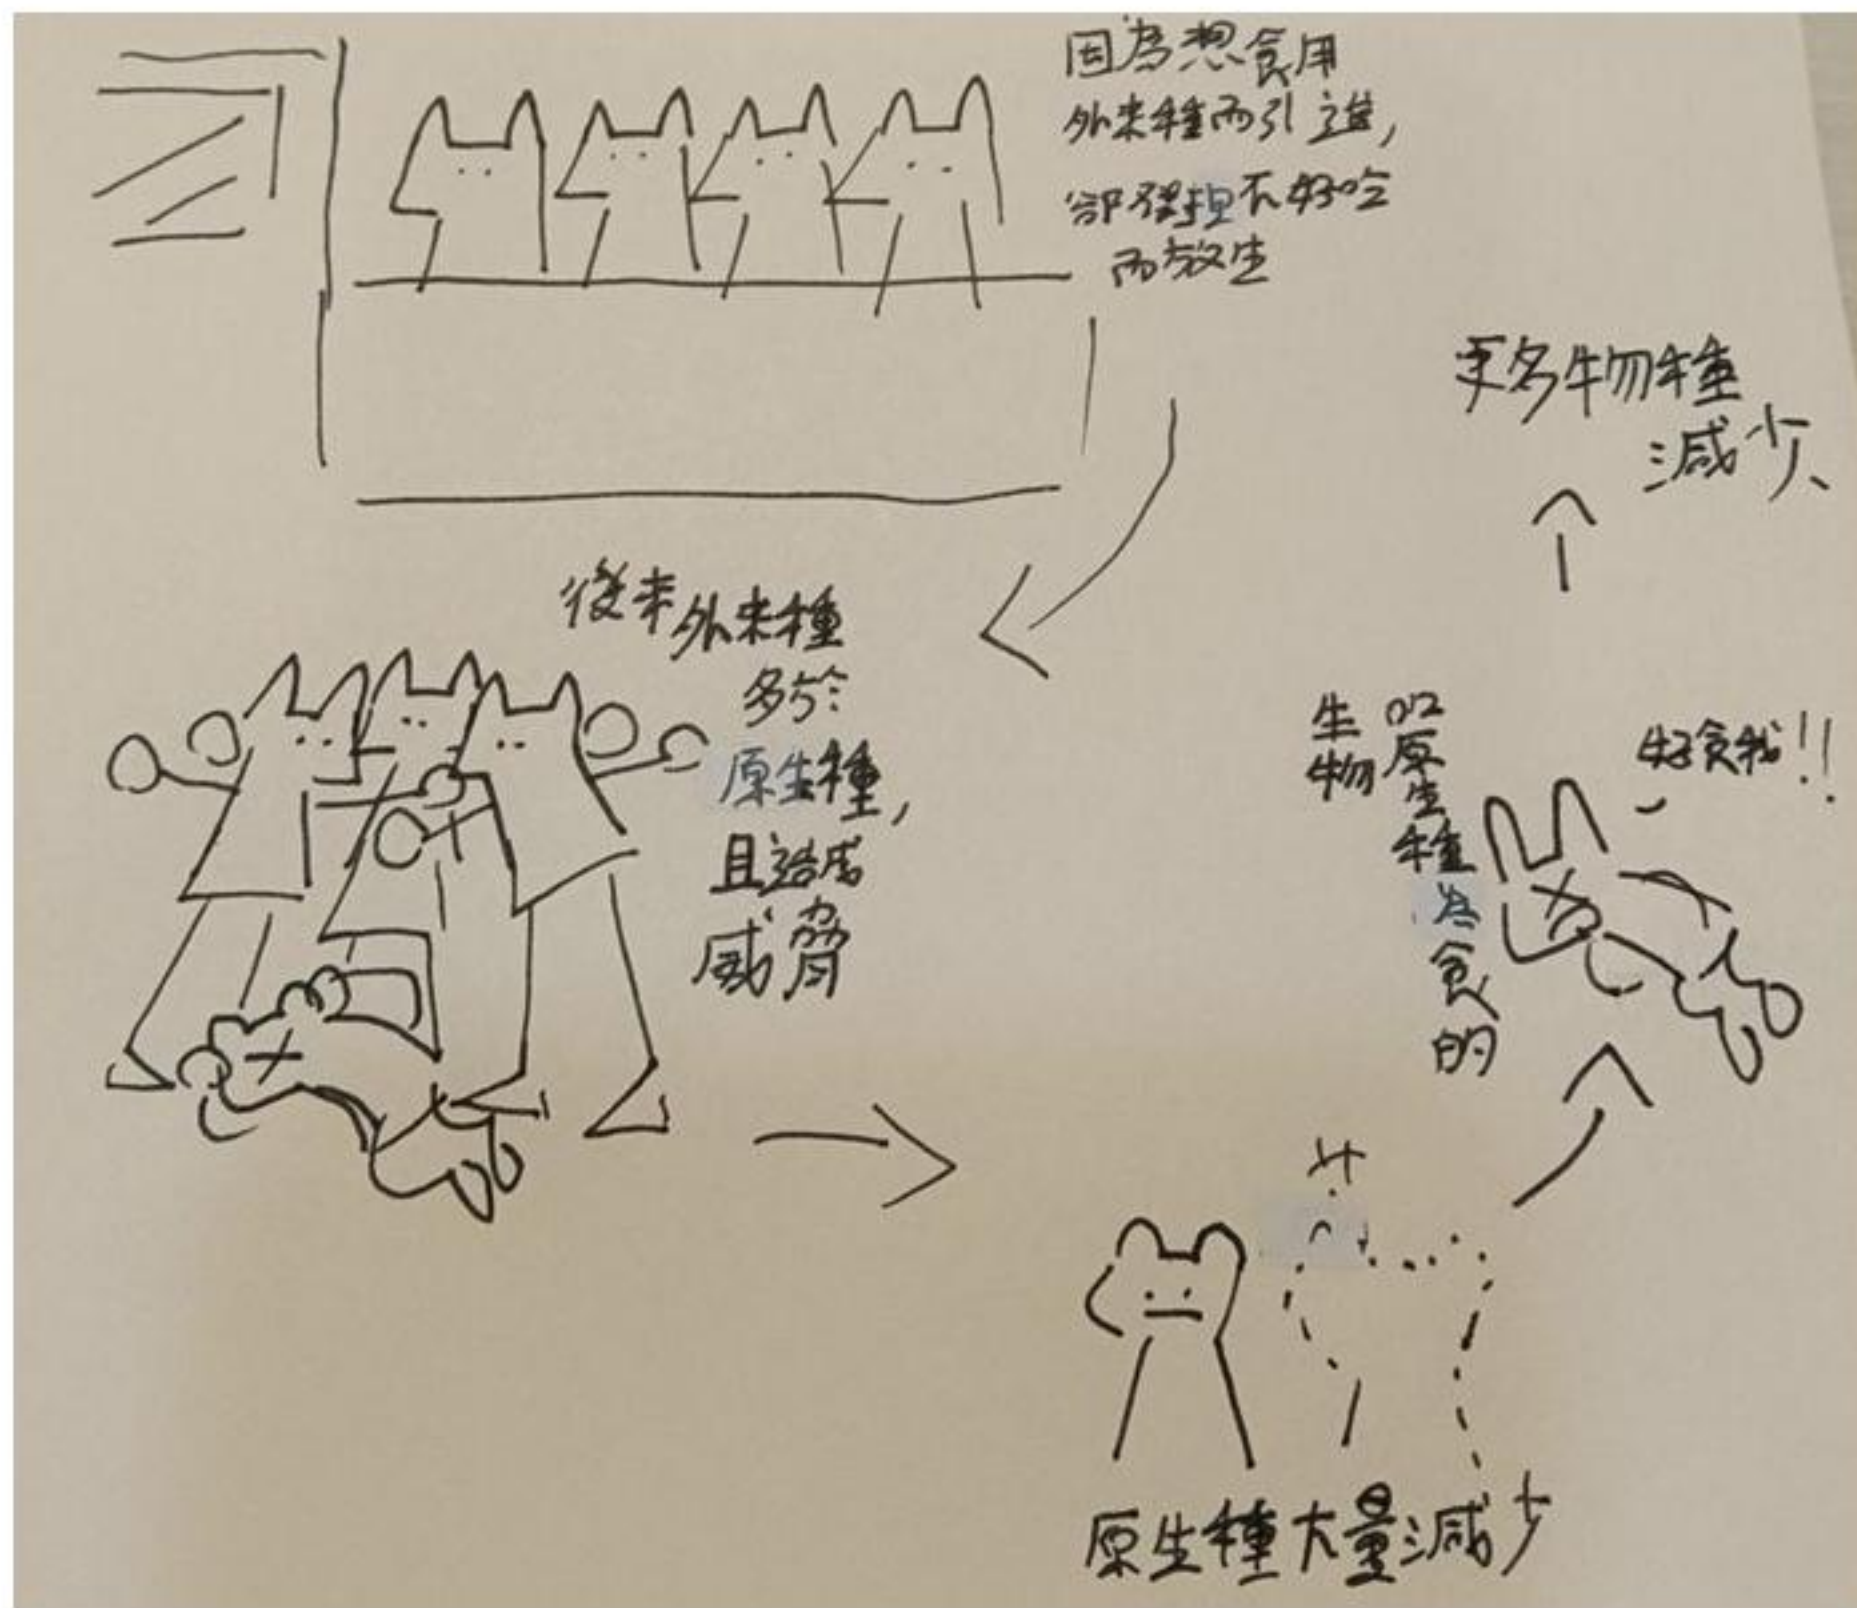 因為想食用
外來種而引進,
卻發現不好吃
而放生
後來外來種
多於
原生種,
且造成
威脅
原生種大量減少
以原生種為食的
生物
好餓!!
更多物種
減少